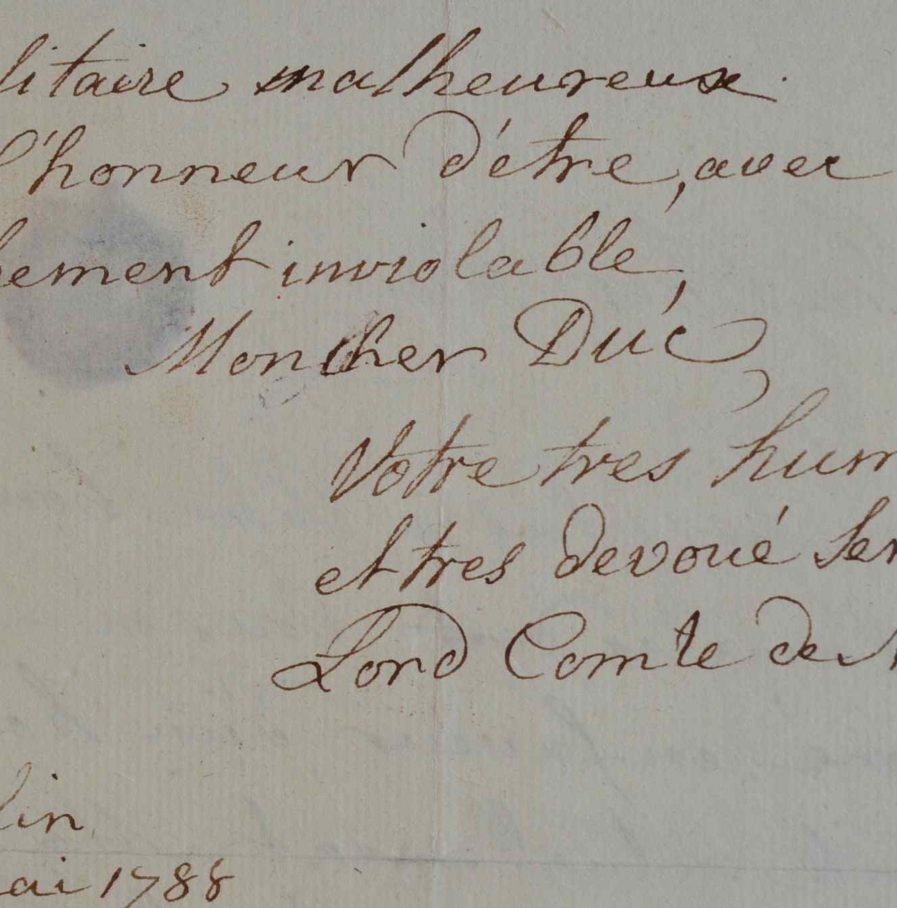 litaire malheureux.
l'honneur d'être, avec
hement inviolable,
Mon cher Duc,
Votre tres hum
et tres devoué ser
Lord Comte de
lin
ai 1788